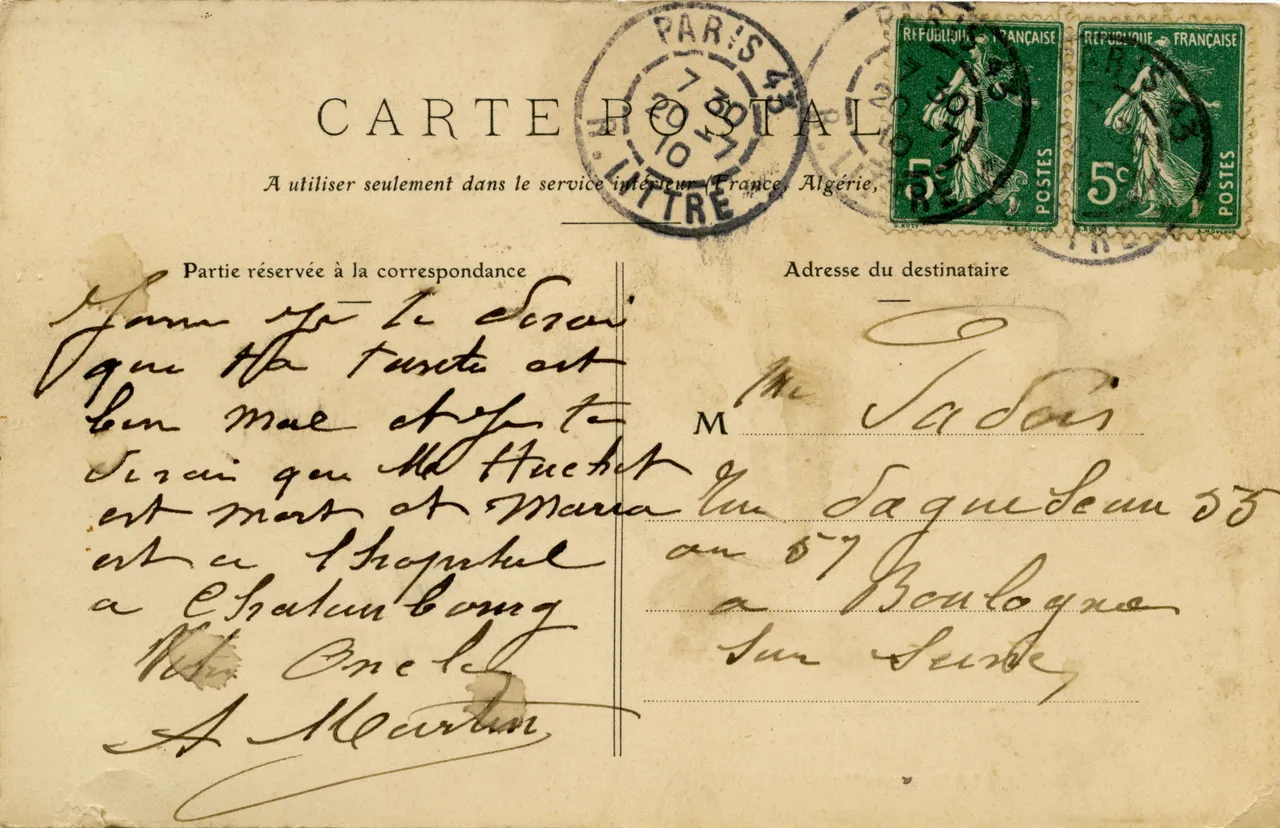 CARTE POSTAL
A utiliser seulement dans le service intérieur (France, Algérie,
PARIS 43
7 30
20 -7
10
R. LITTRÉ
REPUBLIQUE FRANÇAISE
5c POSTES
REPUBLIQUE FRANÇAISE
5c POSTES
Partie réservée à la correspondance
je te dirai
que ta est
bien mal et je te
dirai que Mr Huchet
est mort et Maria
est a lhopital
a Chateaubourg
Votre Oncle
A Martin
Adresse du destinataire
Mme Padois
Rue daguesseau 55
au 57
a Boulogne
sur Seine